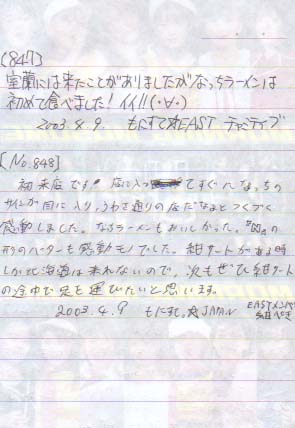 [847]
室蘭には来たことがありましたがなっちラーメンは
初めて食べました！イイ!!(・∀・)
2003.4.9. もにすて☆EAST
[No.848]
初来店です！店に入ってすぐになっちの
サインが目に入り、うわさ通りの店だなぁとつくづく
感動しました。なっちラーメンもおいしかった。
形のバターも感動モノでした。紺サートがある時
しか北海道は来れないので、次もぜひ紺サート
の途中で足を運びたいと思います。
2003.4.9 もにすて☆JAPAN EASTメンバー